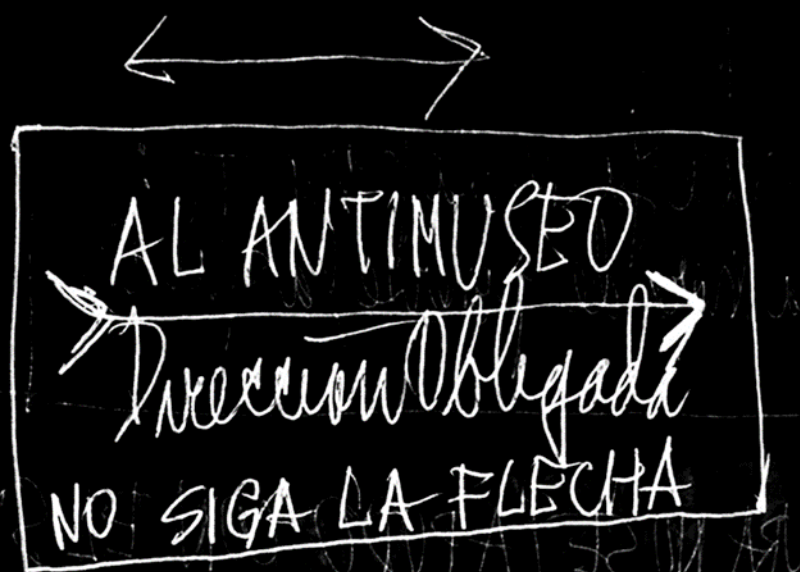 AL ANTIMUSEO
Dirección Obligada
NO SIGA LA FLECHA